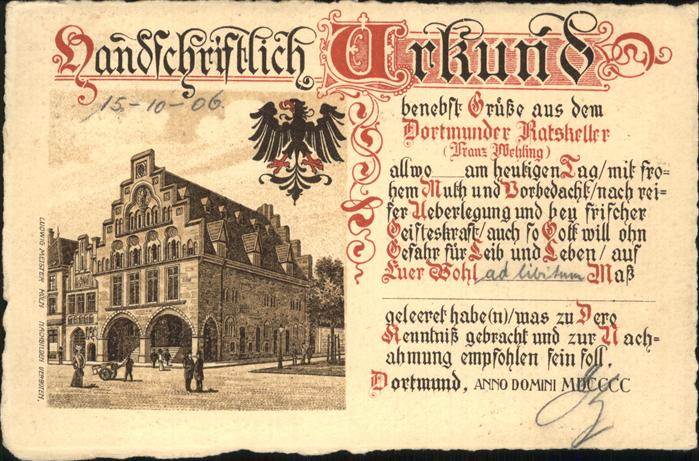 Handschriftlich Urkund
15-10-06.
benebst Grüße aus dem
Dortmunder Ratskeller
(Franz Wehling)
allwo am heutigen Tag/mit fro=
hem Muth und Vorbedacht/nach rei=
fer Ueberlegung und bey frischer
Geisteskraft/auch so Gott will ohn
Gefahr für Leib und Leben/auf
Euer Wohl ad libitum Maß
geleeret habe(n)/was zu Dero
Kenntniß gebracht und zur Nach=
ahmung empfohlen sein soll.
Dortmund, ANNO DOMINI MDCCCC
LUDWIG MEISTER KÖLN NACHBILDEN VERBOTEN.